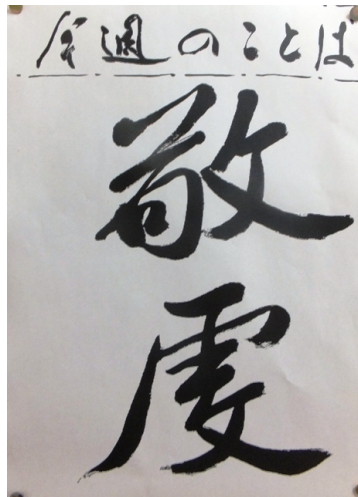 今週のことば
敬
虔